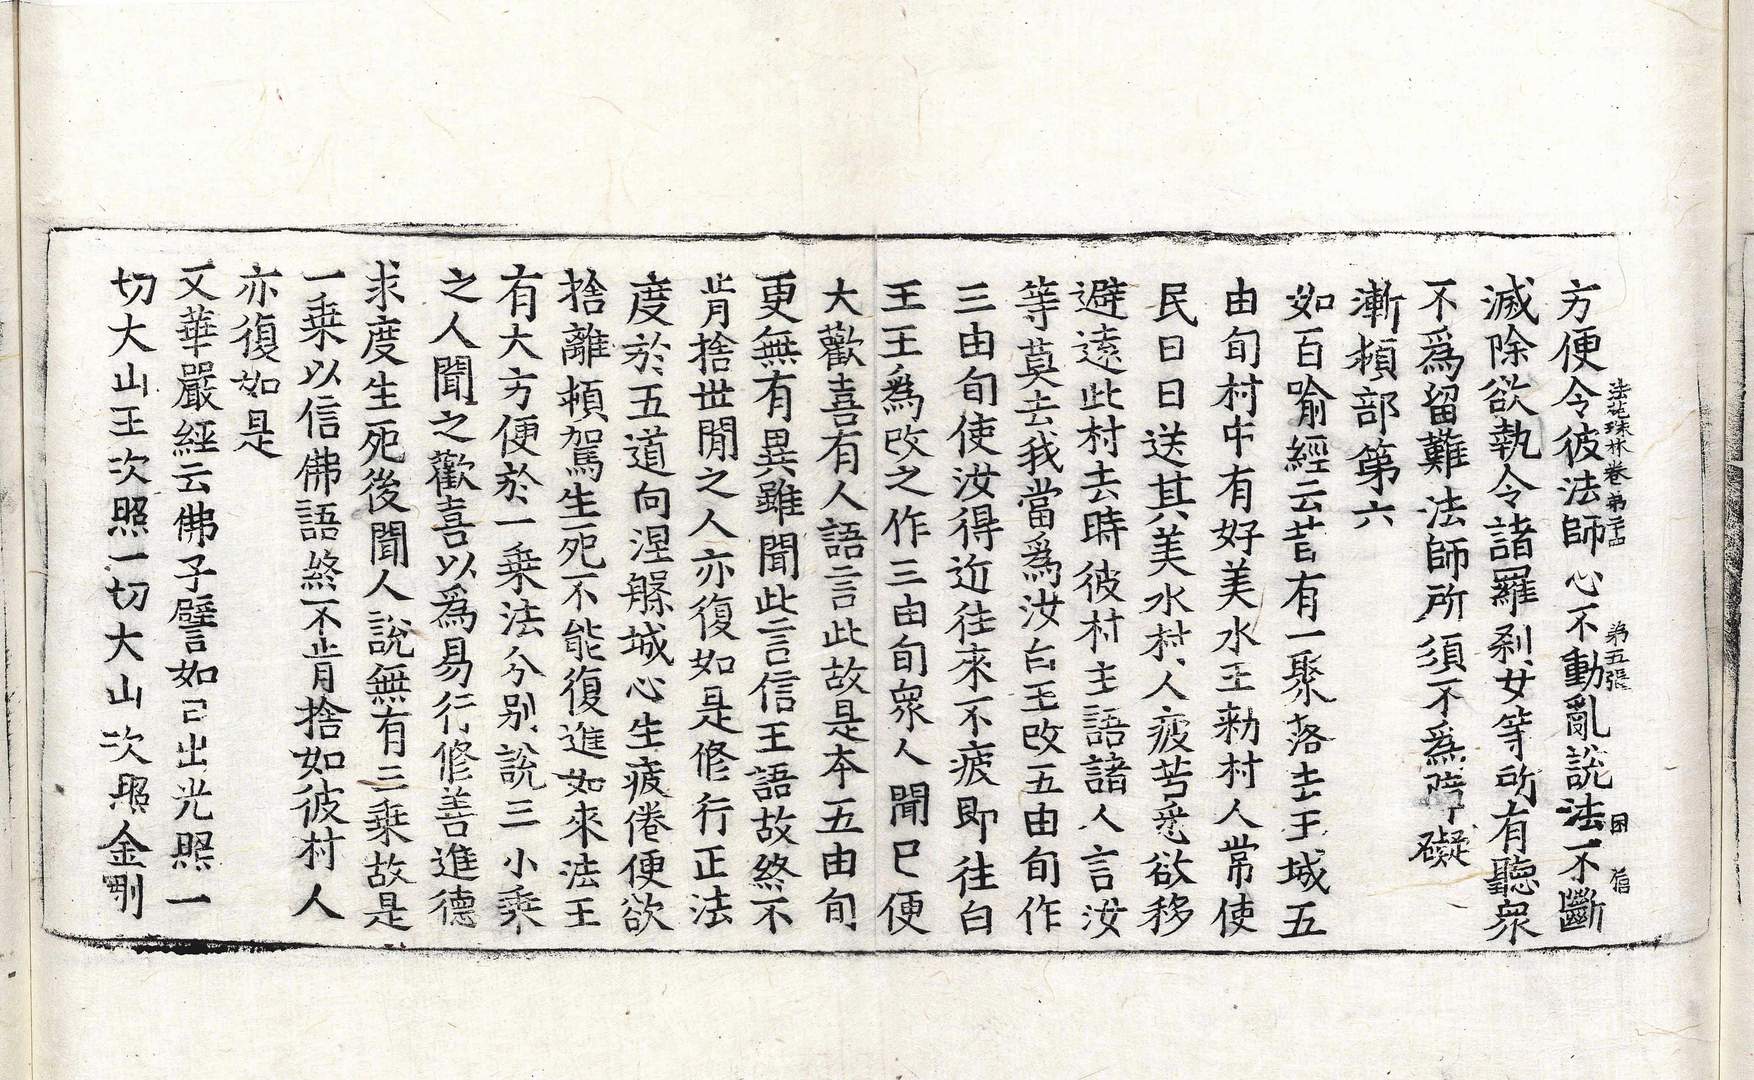 方便令彼法師心不動亂說法不斷
法苑珠林卷第 第五張 因 信
滅除欲執令諸羅刹女等所有聽衆
不爲留難法師所須不爲障礙
漸頓部第六
如百喻經云昔有一聚落去王城五
由旬村中有好美水王勑村人常使
民日日送其美水村人疲苦悉欲移
避遠此村去時彼村主語諸人言汝
等莫去我當爲汝白王改五由旬作
三由旬使汝得近往來不疲即往白
王王爲改之作三由旬衆人聞已便
大歡喜有人語言此故是本五由旬
更無有異雖聞此言信王語故終不
肯捨世間之人亦復如是修行正法
度於五道向涅槃城心生疲倦便欲
捨離頓駕生死不能復進如來法王
有大方便於一乗法分别說三小乗
之人聞之歡喜以爲易行修善進德
求度生死後聞人說無有三乗故是
一乗以信佛語終不肯捨如彼村人
亦復如是
又華嚴經云佛子譬如日出光照一
切大山王次照一切大山次照金剛